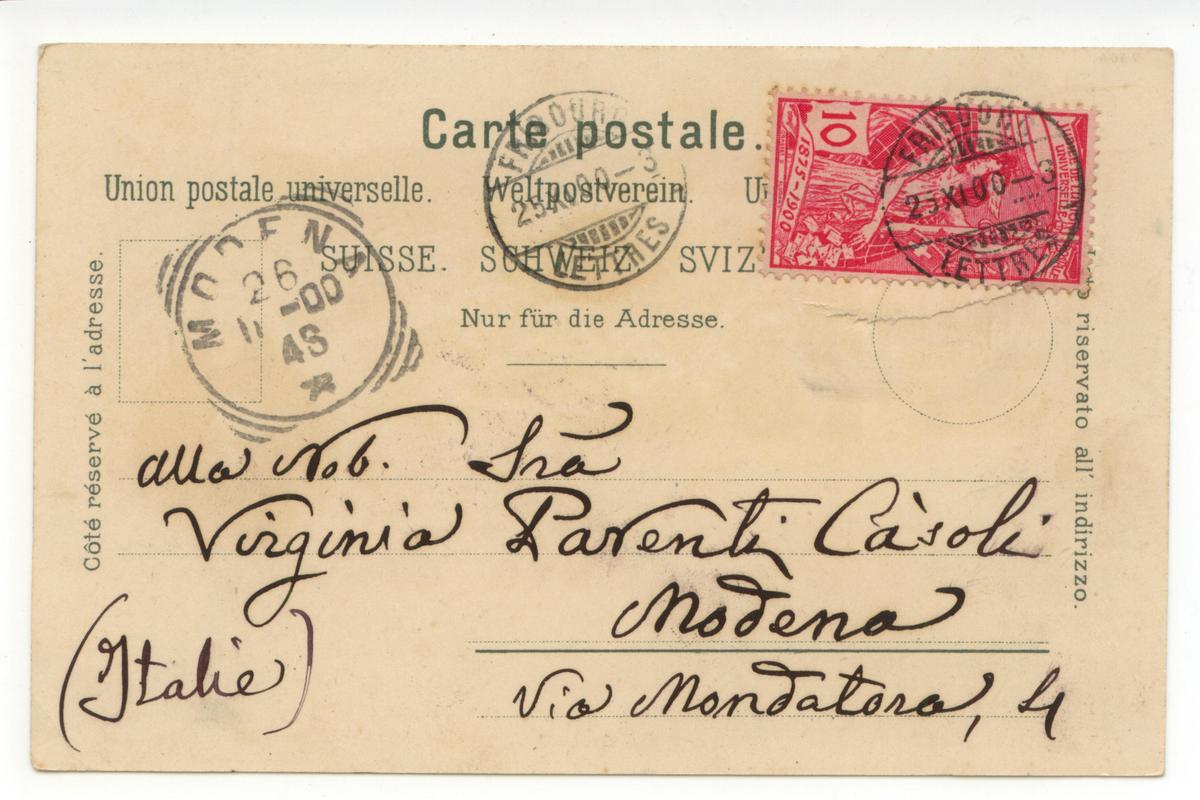 Carte postale.
Union postale universelle. Weltpostverein. U
SUISSE. SCHWEIZ. SVIZ
Nur für die Adresse.
Côté réservé à l'adresse.
riservato all' indirizzo.
10
1875-1900
FRIBOURG
23.XI.00-3
LETTRES
FRIBOURG
23.XI.00-3
LETTRES
MODENA
26
11-00
4S
alla Nob. Sra
Virginia Parenti Càsoli
Modena
Via Mondatora, 4
(Italie)